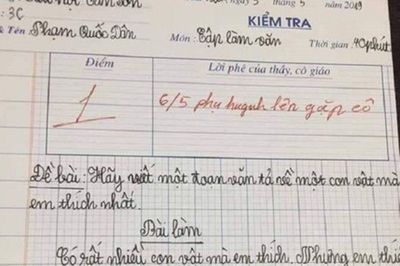 ngày 3 tháng 5 năm 2019
: 3C
KIỂM TRA
& Tên Phạm Quốc Dân Môn: Tập làm văn Thời gian: 40 phút
Điểm
Lời phê của thầy, cô giáo
1
6/5 phụ huynh lên gặp cô
Đề bài: Hãy viết một đoạn văn tả về một con vật mà
em thích nhất.
Bài làm
Có rất nhiều con vật mà em thích. Nhưng em thí